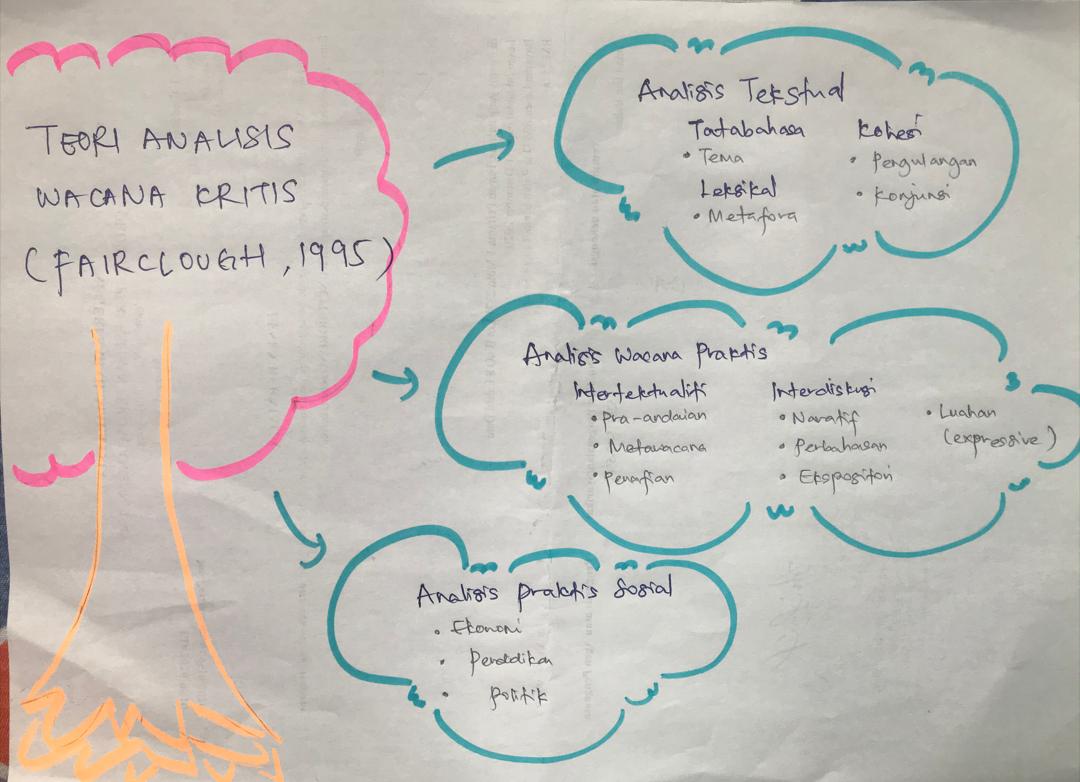 TEORI ANALISIS
WACANA KRITIS
(FAIRCLOUGH, 1995)
Analisis Tekstual
Tatabahasa
• Tema
Leksikal
• Metafora
Kohesi
• Pengulangan
• Konjunsi
Analisis Wacana Praktis
Intertekstualiti
• Pra-andaian
• Metawacana
• Penafian
Interdiskusi
• Naratif
• Perbahasan
• Ekspositori
• Luahan
(expressive)
Analisis Praktis Sosial
• Ekonomi
• Pendidikan
• Politik